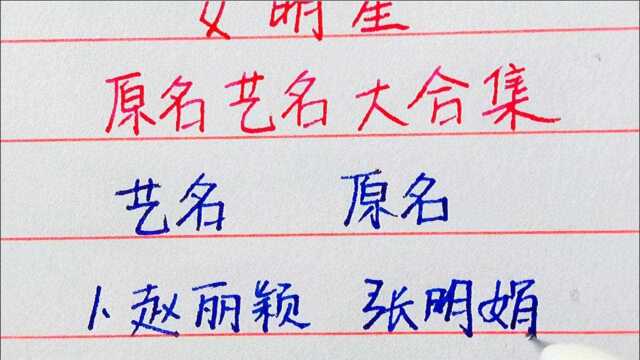 女明星
原名艺名大合集
艺名 原名
1、赵丽颖 张明娟